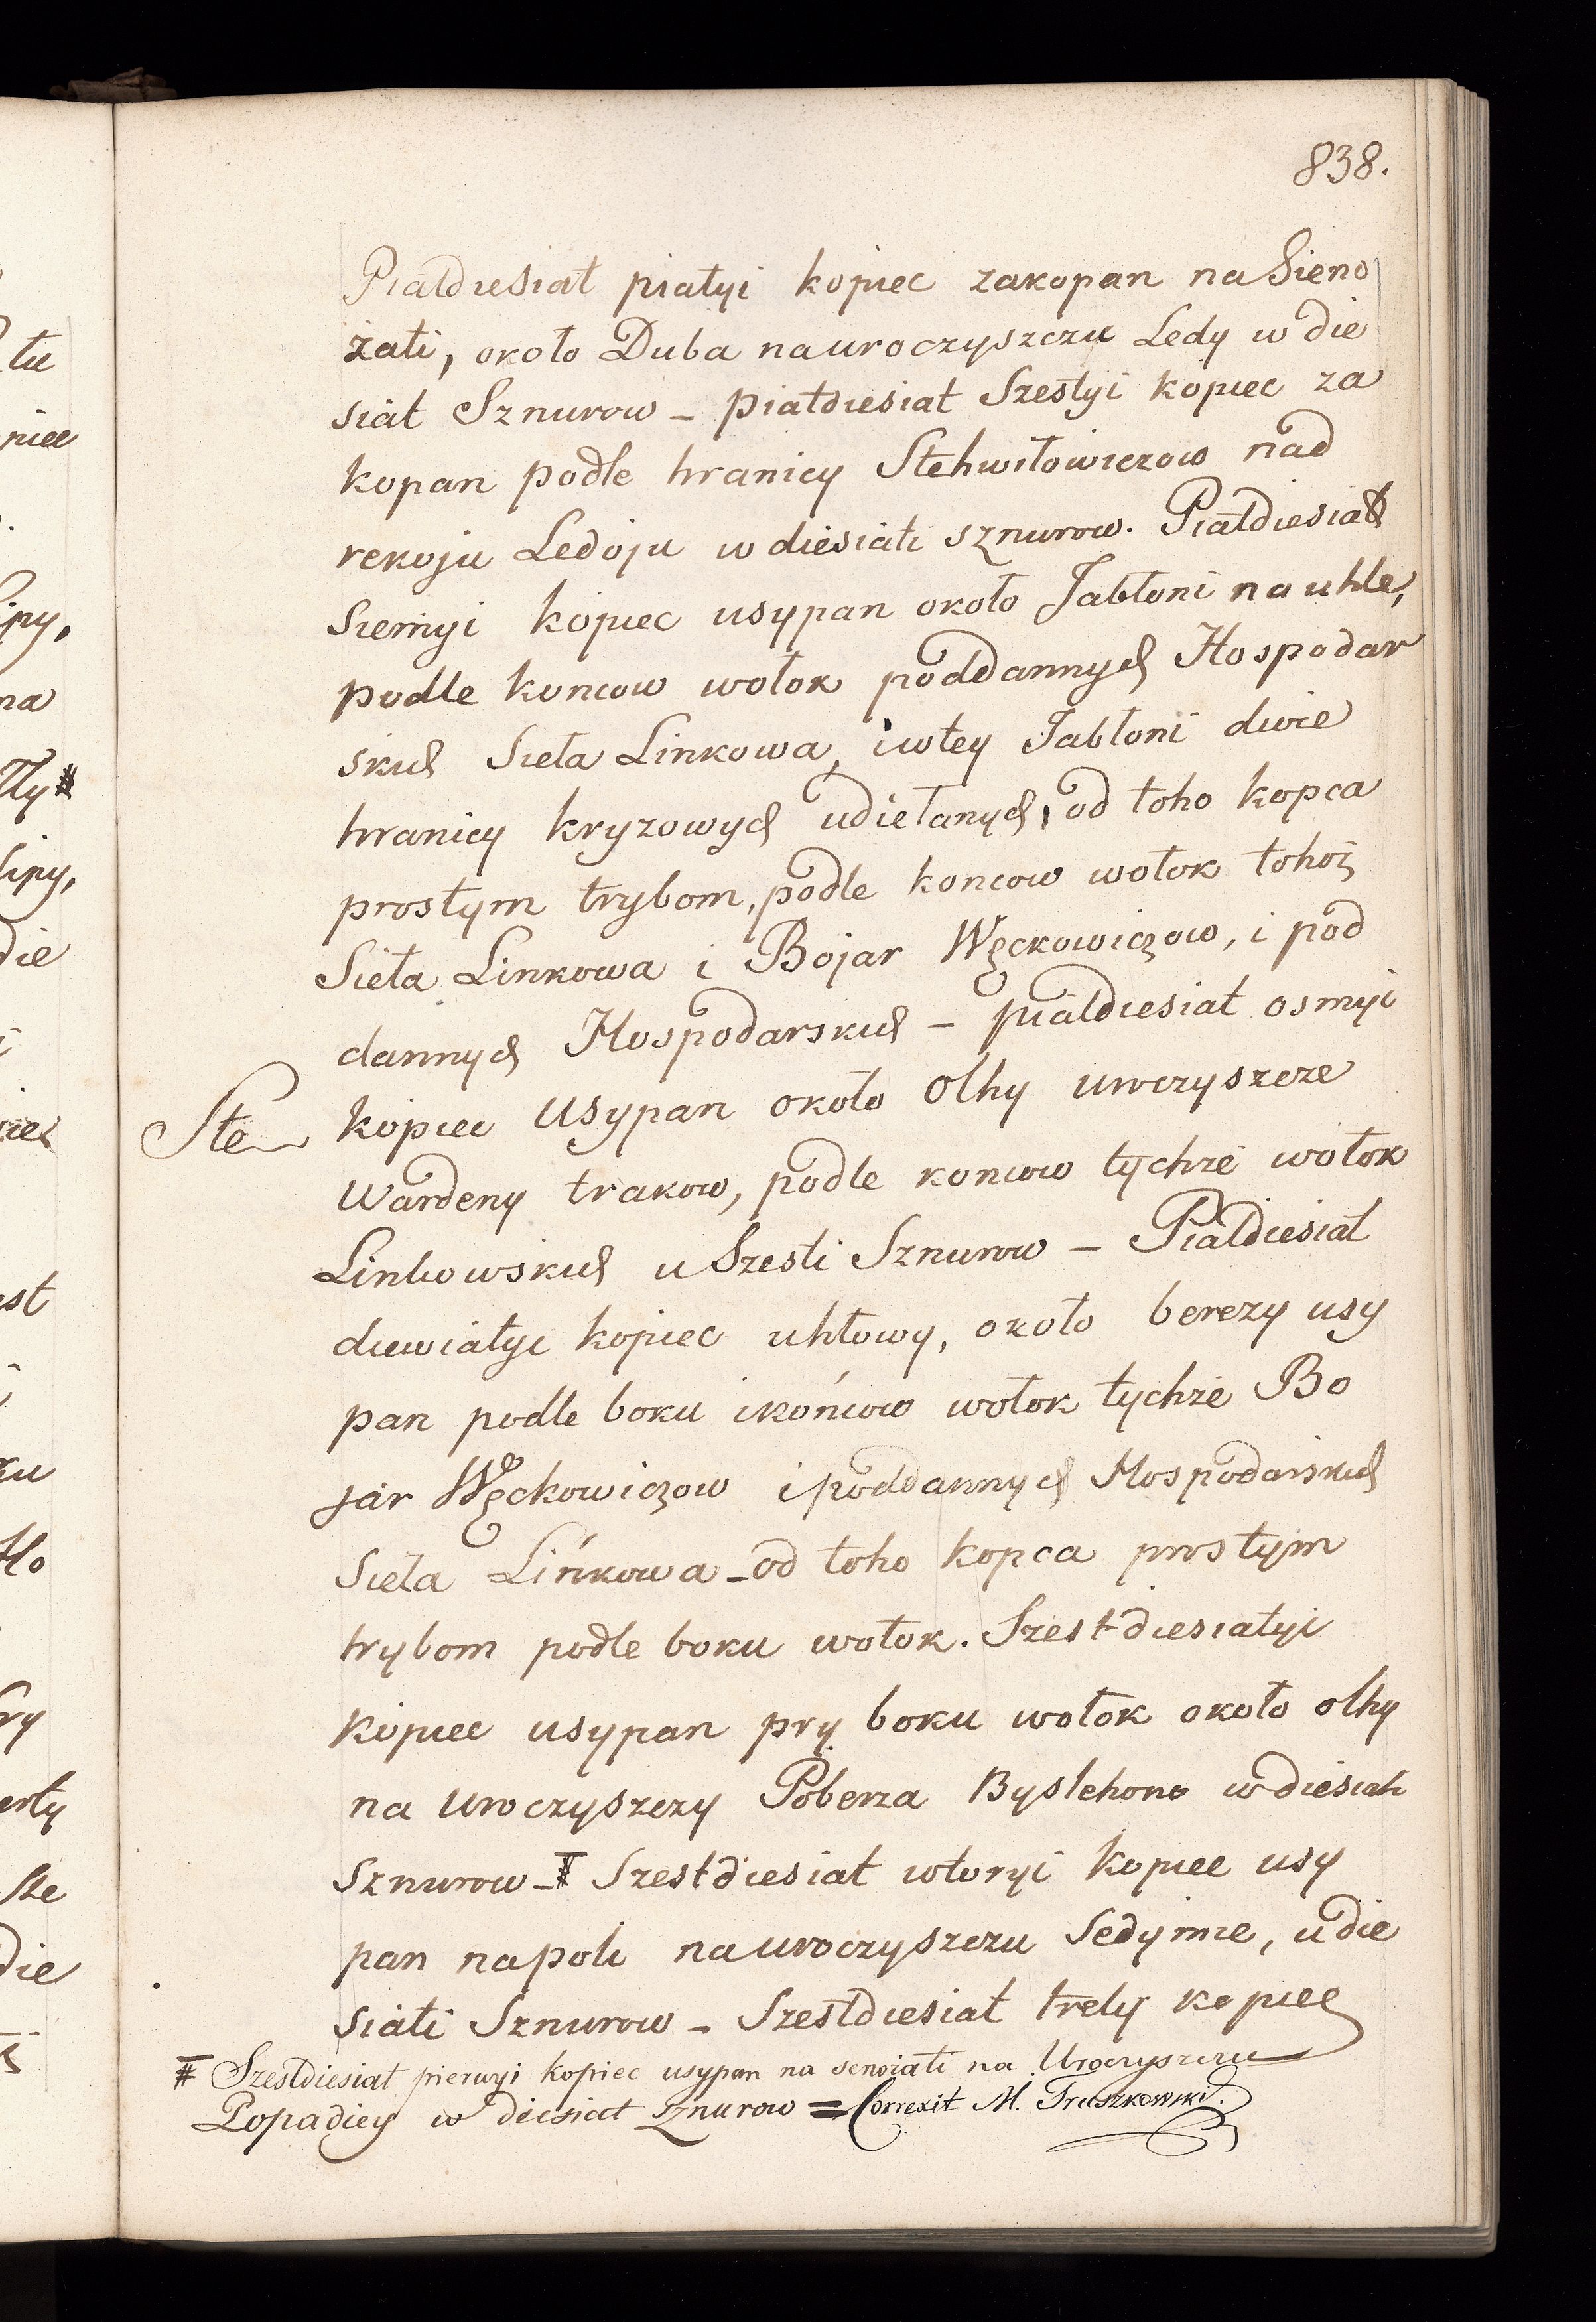 838.
Piatdiesiat piatyi kopiec zakopan na Sieno
żati, około Duba na uroczyszczu Ledy w die
siat Sznurow – piatdiesiat Szestyi kopiec za
kopan podle hranicy Stehwiłowiczow nad
rekoju Ledoju w diesiati sznurow. Piatdiesiat
Siemyi kopiec usypan około Jabłoni na uhle,
podle koncow wołok poddannych Hospodar
skich Sieła Linkowa, i w tey Jabłoni dwie
hranicy kryzowych udiełanych, od toho kopca
prostym trybom, podle koncow wołok tohoż
Sieła Linkowa i Bojar Węckowiczow, i pod
dannych Hospodarskich – piatdiesiat osmyi
Ste kopiec usypan około Olhy uroczyszcze
Wardeny trakow, podle koncow tychże wołok
Linkowskich u Szesti Sznurow – Piatdiesiat
diewiatyi kopiec uhłowy, około berezy usy
pan podle boku i końcow wołok tychże Bo
jar Węckowiczow i poddannych Hospodarskich
Sieła Lińkowa – od toho kopca prostym
trybom podle boku wołok. Szestdiesiatyi
kopiec usypan pry boku wołok około olhy
na uroczyszczy Poberza Byslehono w diesiati
sznurow – # Szestdiesiat wtoryi kopiec usy
pan na poli na uroczyszczu Sedymie, u die
siati Sznurow – Szestdiesiat trety kopiec
# Szestdiesiat pierwyi kopiec usypan na senożati na Uroczyszczu
Popadiey w diesiat sznurow = Correxit M. Truszkowski.